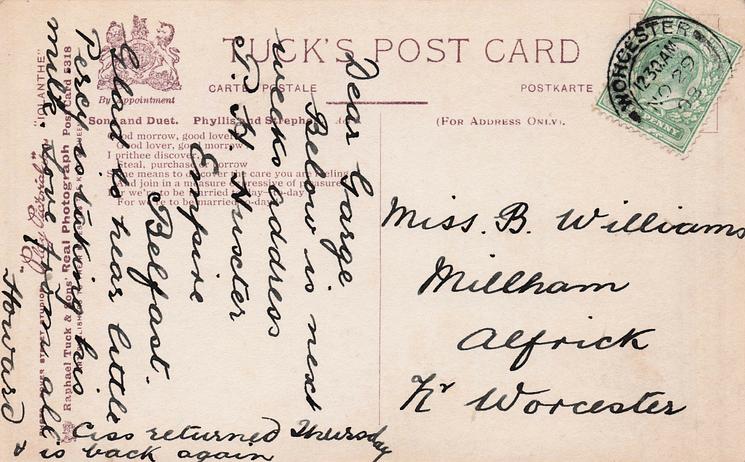 TUCK'S POST CARD
CARTE POSTALE
POSTKARTE
By Appointment
(FOR ADDRESS ONLY).
WORCESTER
12.30 AM
NO 29
08
PENNY
Song and Duet. Phyllis and Strephon
Good morrow, good lover
Good lover, good morrow
I prithee discover,
Steal, purchase or borrow
Some means to
care you are feeling
And join in a measure expressive of pleasure
For we're to be married to-day—to-day
For we're to be married to-day
"IOLANTHE"
Raphael Tuck & Sons' Real Photograph Post Card 5318
Dear Garge
Below is next
weeks address
P. H. Huxter
Empire
Belfast.
Glad to hear little
Percy is taking his
milk. Love from all
"Howard"
Ciss returned Thursday
& is back again
Miss. B. Williams
Millham
Alfrick
Nr Worcester